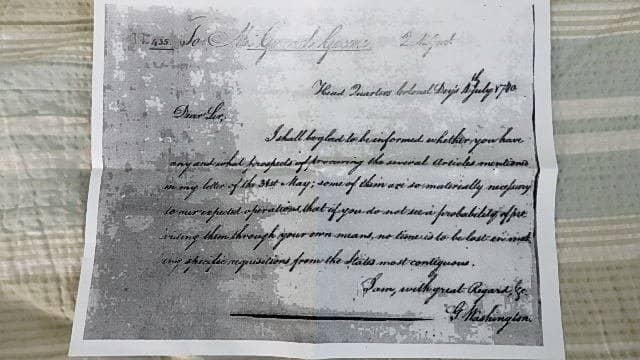 435. To M. General Greene.
Head Quarters Colonel Dey's July 1780
Dear Sir,
I shall be glad to be informed whether you have
any and what prospects of procuring the several Articles mentiond
in my letter of the 31st May; some of them are so materially necessary
to our expected operations, that if you do not see a probability of pro
viding them through your own means, no time is to be lost in mak
ing specific requisitions from the States most contiguous.
I am, with great Regard, &c
G Washington.